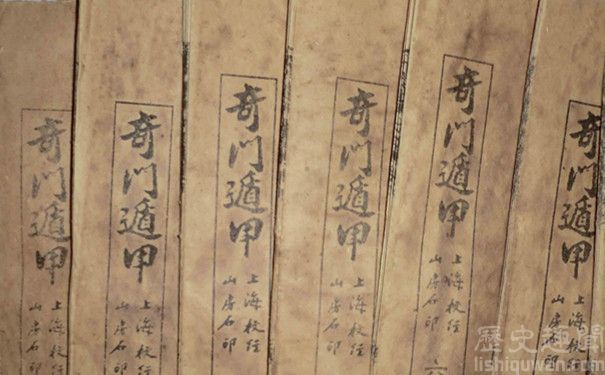 奇門遁甲
上海校經
山房石印
奇門遁甲
上海校經
山房石印
奇門遁甲
上海校經
山房石印
奇門遁甲
上海校經
山房石印
奇門遁甲
上海校經
山房石印
六
奇門遁甲
上海校經
山房石印
歷史趣聞
lishiquwen.com